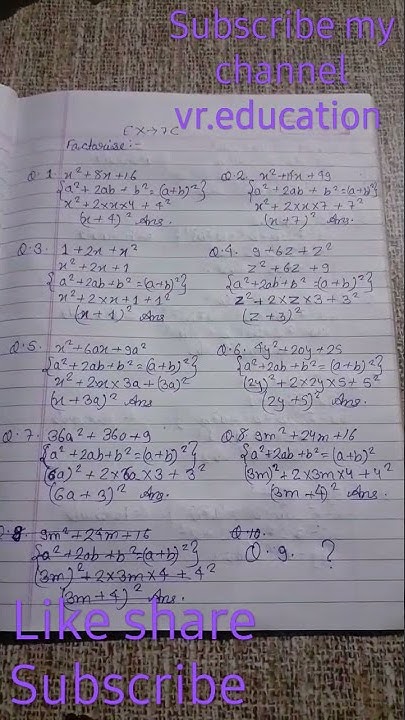 Subscribe my
channel
vr.education
EX→7C
Factorise:-
Q.1. x²+8x+16
{a²+2ab+b²=(a+b)²}
x²+2×x×4+4²
(x+4)² Ans.
Q.2. x²+14x+49
{a²+2ab+b²=(a+b)²}
x²+2×x×7+7²
(x+7)² Ans.
Q.3. 1+2x+x²
x²+2x+1
{a²+2ab+b²=(a+b)²}
x²+2×x×1+1²
(x+1)² Ans
Q.4. 9+6z+z²
z²+6z+9
{a²+2ab+b²=(a+b)²}
z²+2×z×3+3²
(z+3)²
Q.5. x²+6ax+9a²
{a²+2ab+b²=(a+b)²}
x²+2x×3a+(3a)²
(x+3a)² Ans
Q.6. 4y²+20y+25
{a²+2ab+b²=(a+b)²}
(2y)²+2×2y×5+5²
(2y+5)² Ans.
Q.7. 36a²+36a+9
{a²+2ab+b²=(a+b)²}
(6a)²+2×6a×3+3²
(6a+3)² Ans.
Q.8. 9m²+24m+16
{a²+2ab+b²=(a+b)²
(3m)²+2×3m×4+4²
(3m+4)² Ans.
9m²+24m+16
{a²+2ab+b²=(a+b)²}
(3m)²+2×3m×4+4²
(3m+4)² Ans.
Q.10.
Q.9. ?
Like share
Subscribe